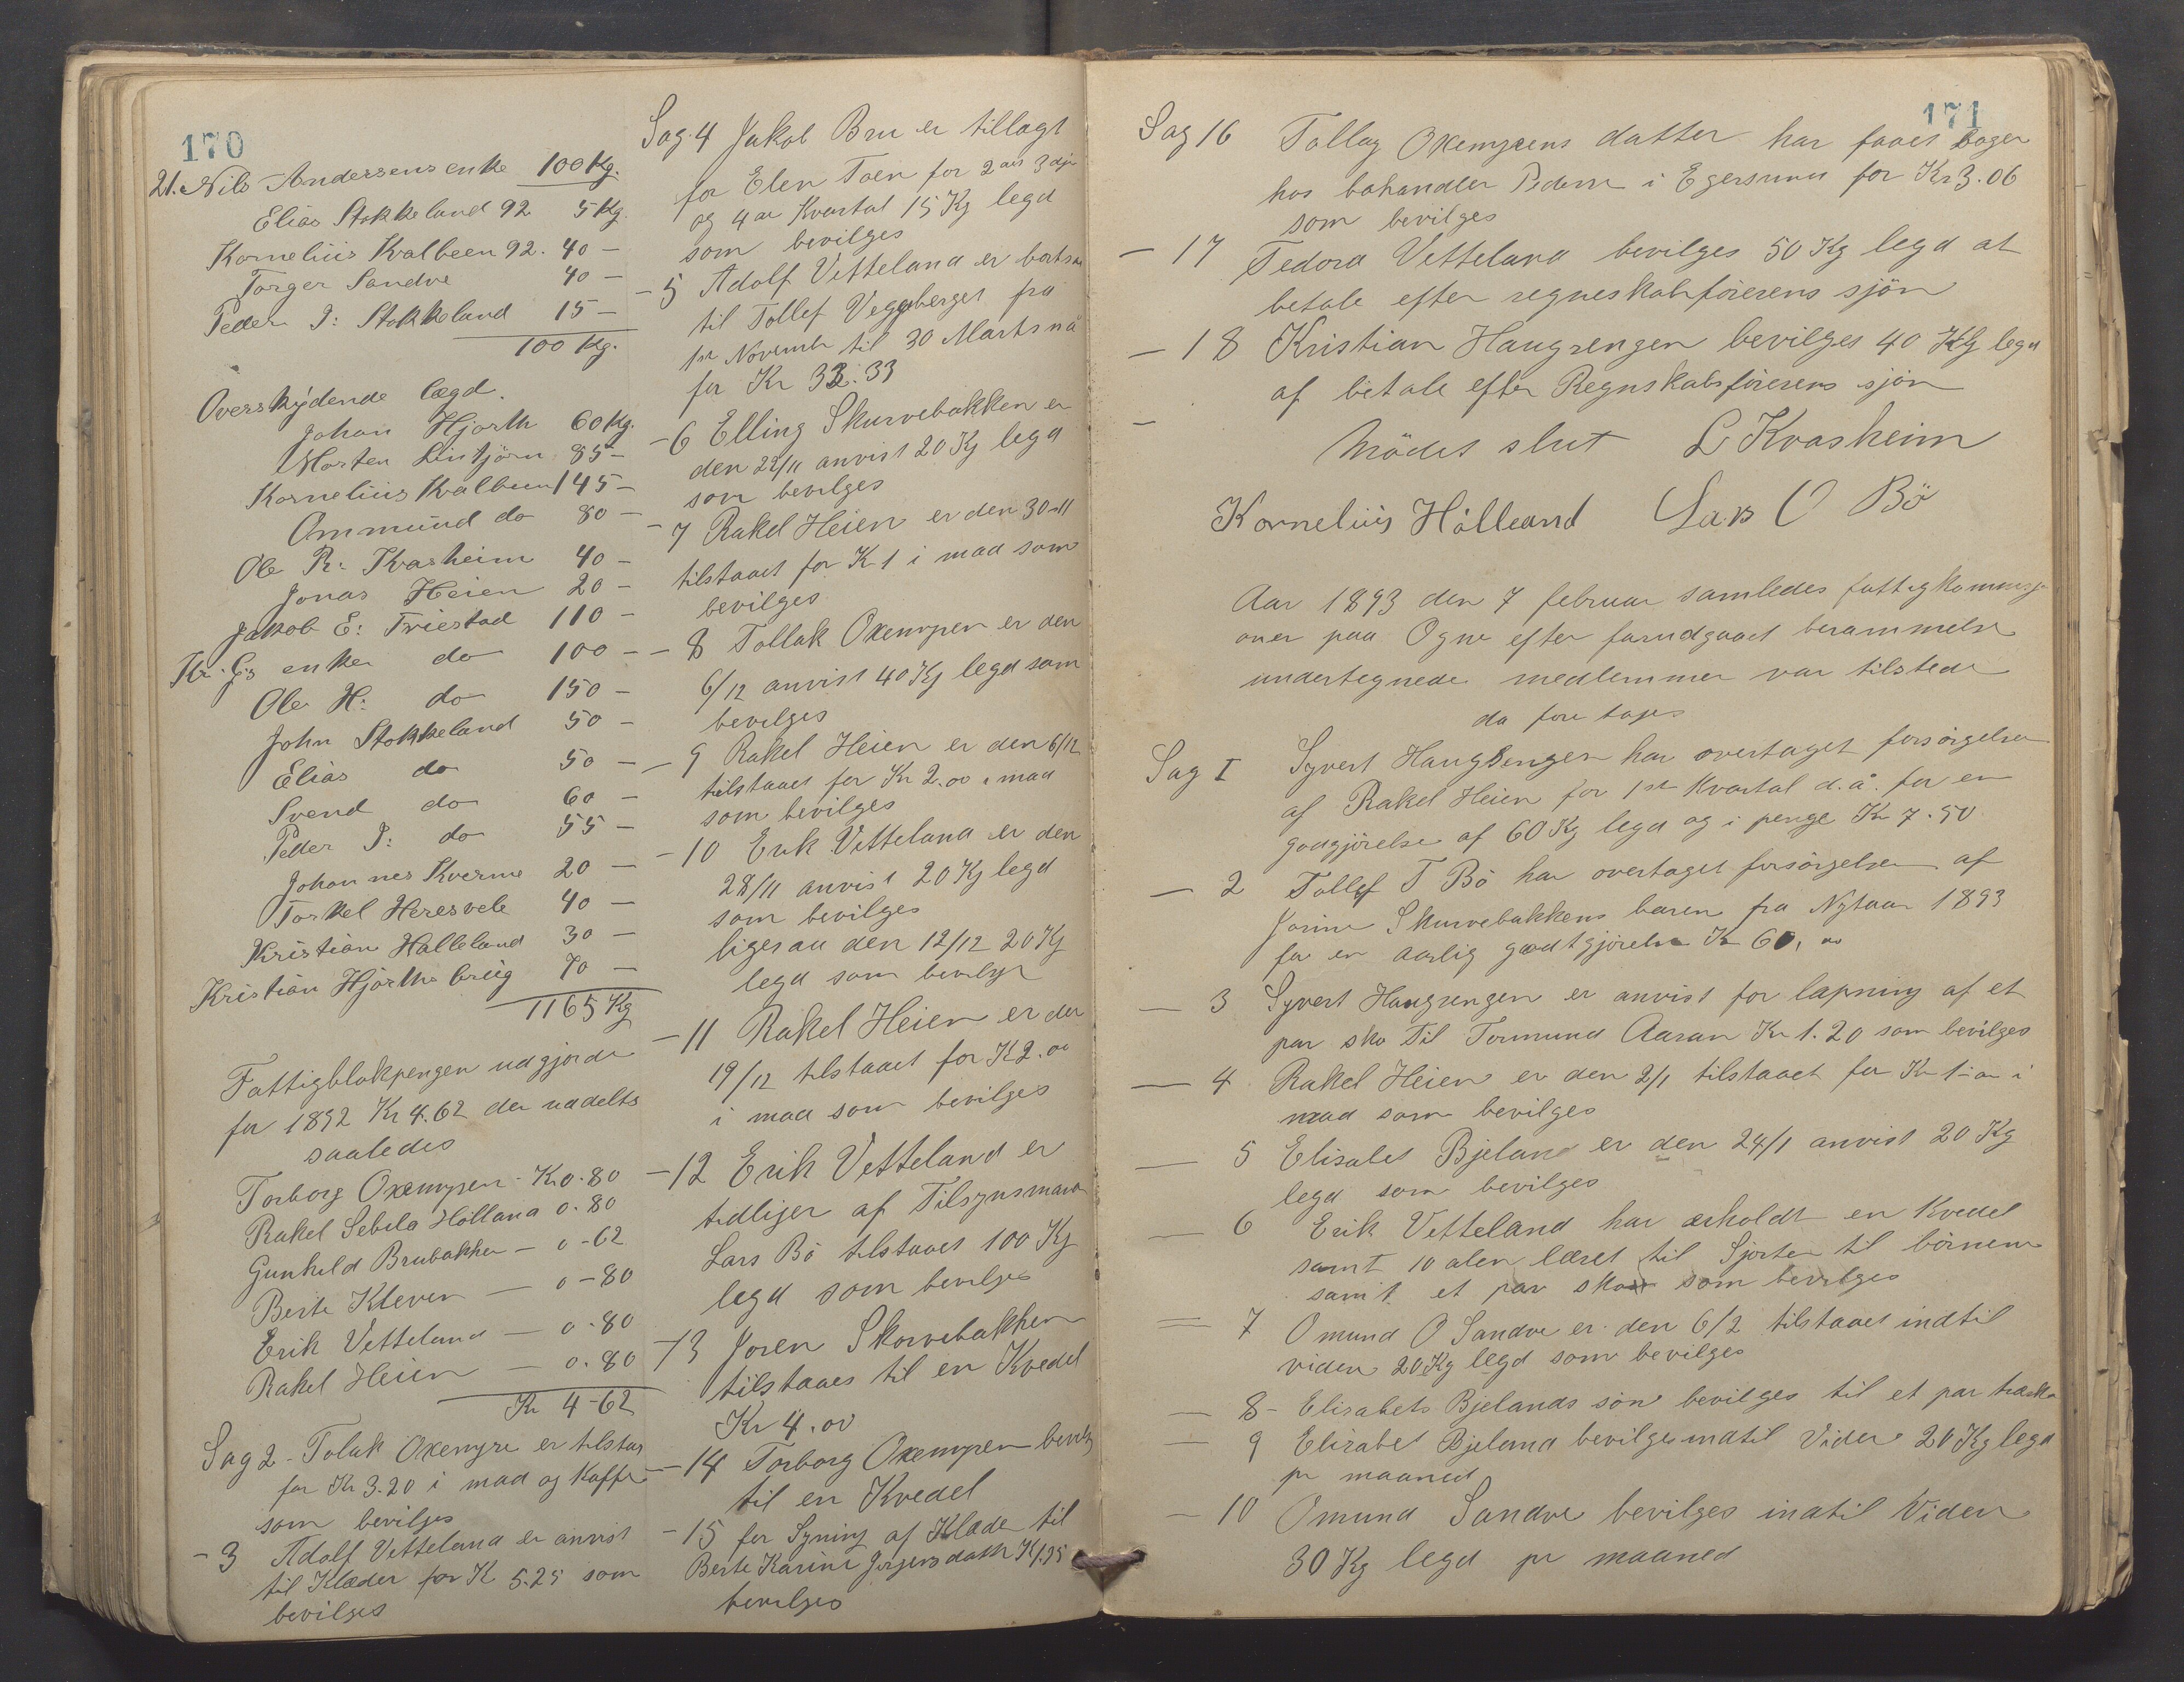 170
21. Nils Andersens enke 100 Kg.
Elias Stokkeland 92 5 Kg.
Kornelius Kvalbeen 92. 40 —
Torger Sandve 40 —
Peder I: Stokkeland 15 —
100 Kg.
Overskydende lægd.
Johan Hjorth 60 Kg.
Morten Lintjörn 85 —
Kornelius Kvalbeen 145 —
Ommund do 80 —
Ole R: Kvasheim 40 —
Jonas Heien 20 —
Jakob E: Tviestad 110 —
Kr. G's enke do 100 —
Ole H: do 150 —
John Stokkeland 50 —
Elias do 50 —
Svend do 60 —
Peder I: do 55 —
Johannes Kverme 20 —
Torkel Heresvele 40 —
Kristian Halleland 30 —
Kristian Hjorths brug 70 —
1165 Kg
Fattigblokpengen udgjorde
for 1892 Kr 4.62 der uddelts
saaledes
Torborg Oxemyren - Kr 0.80
Rakel Sebela Hölland 0.80
Gunhild Brubakken — 0-62
Berte Kleven — 0-80
Erik Vetteland — 0.80
Rakel Heien — 0.80
Kr 4-62
Sag 2 - Tolak Oxemyre er tilstaa
for Kr 3.20 i mad og Kaffe
som bevilges
- 3 Adolf Vetteland er anvist
til Klæder for K 5.25 som
bevilges
Sag 4 Jakob Bru er tillagt
for Elen Toen for 2det 3dje
og 4de Kvartal 15 Kg legd
som bevilges
- 5 Adolf Vetteland er bortsat
til Tollef Veggberget fra
1st Novembr til 30 Marts na
for Kr 33.33
- 6 Elling Skurvebakken er
den 22/11 anvist 20 Kg legd
som bevilges
- 7 Rakel Heien er den 30-11
tilstaaet for K 1 i mad som
bevilges
- 8 Tollak Oxemyren er den
6/12 anvist 40 Kg legd som
bevilges
- 9 Rakel Heien er den 6/12
tilstaaet for Kr 2.00 i mad
som bevilges
- 10 Erik Vetteland er den
28/11 anvist 20 Kg legd
som bevilges
ligesaa den 12/12 20 Kg
legd som bevilges
- 11 Rakel Heien er den
19/12 tilstaaet for K 2.00
i mad som bevilges
- 12 Erik Vetteland er
tidliger af Tilsynsmand
Lars Bö tilstaaet 100 Kg
legd som bevilges
- 13 Joren Skorvebakken
tilstaaes til en Kvedel
Kr 4.00
- 14 Torborg Oxemyren bevilg
til en Kvedel
- 15 for Syning af Klæde til
Berte Karine Jörgensdatt K 1.35
bevilges
171
Sag 16 Tollag Oxemyrens datter har faaet bøger
hos bohandler Pedersen i Egersund for Kr 3.06
som bevilges
— 17 Tedora Vetteland bevilges 50 Kg legd at
betale efter regneskabsförerens sjön
— 18 Kristian Haugrengen bevilges 40 Kg legd
af betale efter Regnskabsförerens sjön
—
Mödet slut L Kvasheim
Kornelius Hålland Lars O Bö
Aar 1893 den 7 februar samledes fattigkommisj
oner paa Ogne efter forudgaaet berammelse
undertegnede medlemmer var tilstede
da fore toges
Sag I Syvert Haugrengen har overtaget forsörgelsen
af Rakel Heien for 1st Kvartal d.å. for en
godgjörelse af 60 Kg legd og i penge Kr 7.50
— 2 Tollef T Bö har overtaget forsörgelsen af
Jorine Skurvebakkens baren fra Nytaar 1893
for en aarlig godtgjörelse Kr 60,00
— 3 Syvert Haugrengen er anvist for lapning af et
par sko Til Tormund Aaran Kr 1.20 som bevilges
— 4 Rakel Heien er den 2/1 tilstaaet for Kr 1-00 i
mad som bevilges
— 5 Elisabet Bjeland er den 24/1 anvist 20 Kg
legd som bevilges
— 6 Erik Vetteland har erholdt en Kvedel
samt 10 alen læret til Sjorter til börnene
samt et par sko som bevilges
— 7 Omund O Sandve er den 6/2 tilstaaet indtil
viden 20 Kg legd som bevilges
— 8 - Elisabets Bjelands sön bevilges til et par træsko
— 9 Elisabet Bjeland bevilges indtil Viden 20 Kg legd
pr maaned
— 10 Omund Sandve bevilges indtil Viden
30 Kg legd pr maaned